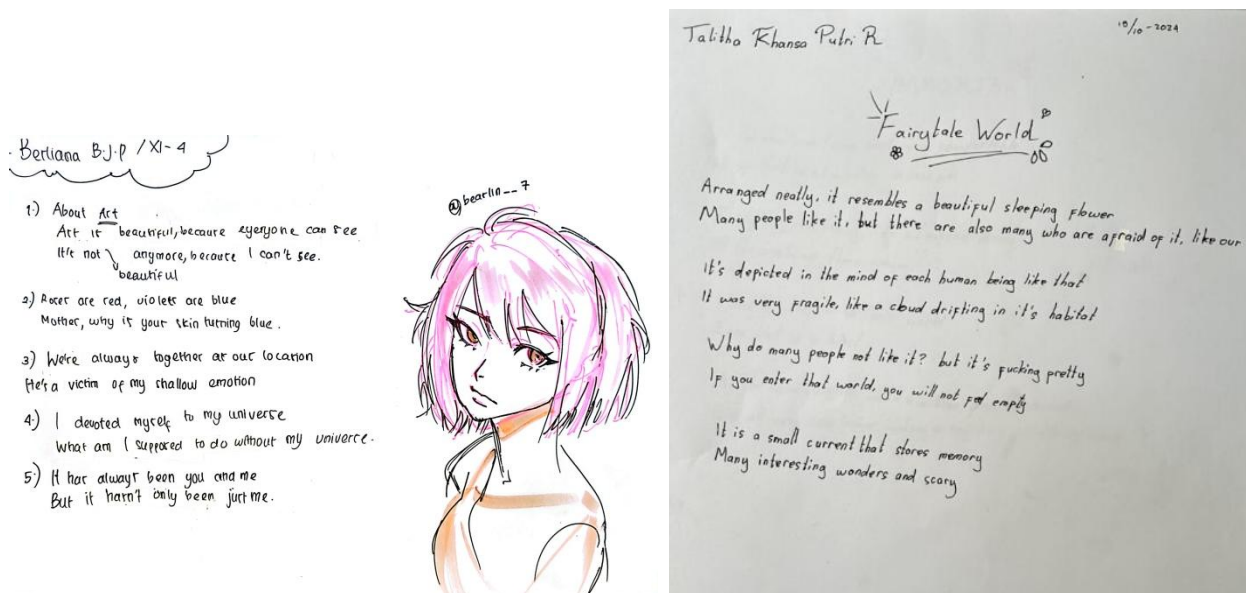 Berliana B.J.P / XI-4
@bearlin__7
1.) About Art
Art is beautiful, because everyone can see
It's not anymore, because I can't see.
beautiful
2.) Roses are red, violets are blue
Mother, why is your skin turning blue.
3) We're always together at our location
He's a victim of my shallow emotion
4.) I devoted myself to my universe
What am I supposed to do without my universe.
5.) It has always been you and me
But it hasn't only been just me.
Talitha Khansa Putri R
10/10-2024
Fairytale World
Arranged neatly, it resembles a beautiful sleeping flower
Many people like it, but there are also many who are afraid of it, like our
It's depicted in the mind of each human being like that
It was very fragile, like a cloud drifting in it's habitat
Why do many people not like it? but it's fucking pretty
If you enter that world, you will not feel empty
It is a small current that stores memory
Many interesting wonders and scary